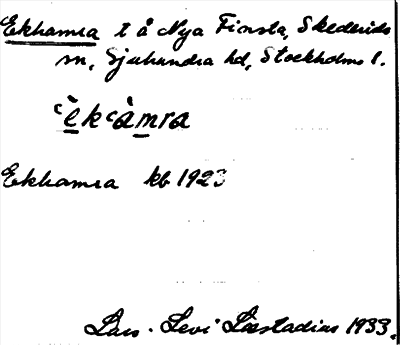 Ekhamra t å Nya Finsta, Skederids
sn, Sjuhundra hd, Stockholms l.
‘è̱k‘àm̱ra
Ekhamra kb 1923
Lars-Levi Læstadius 1933.